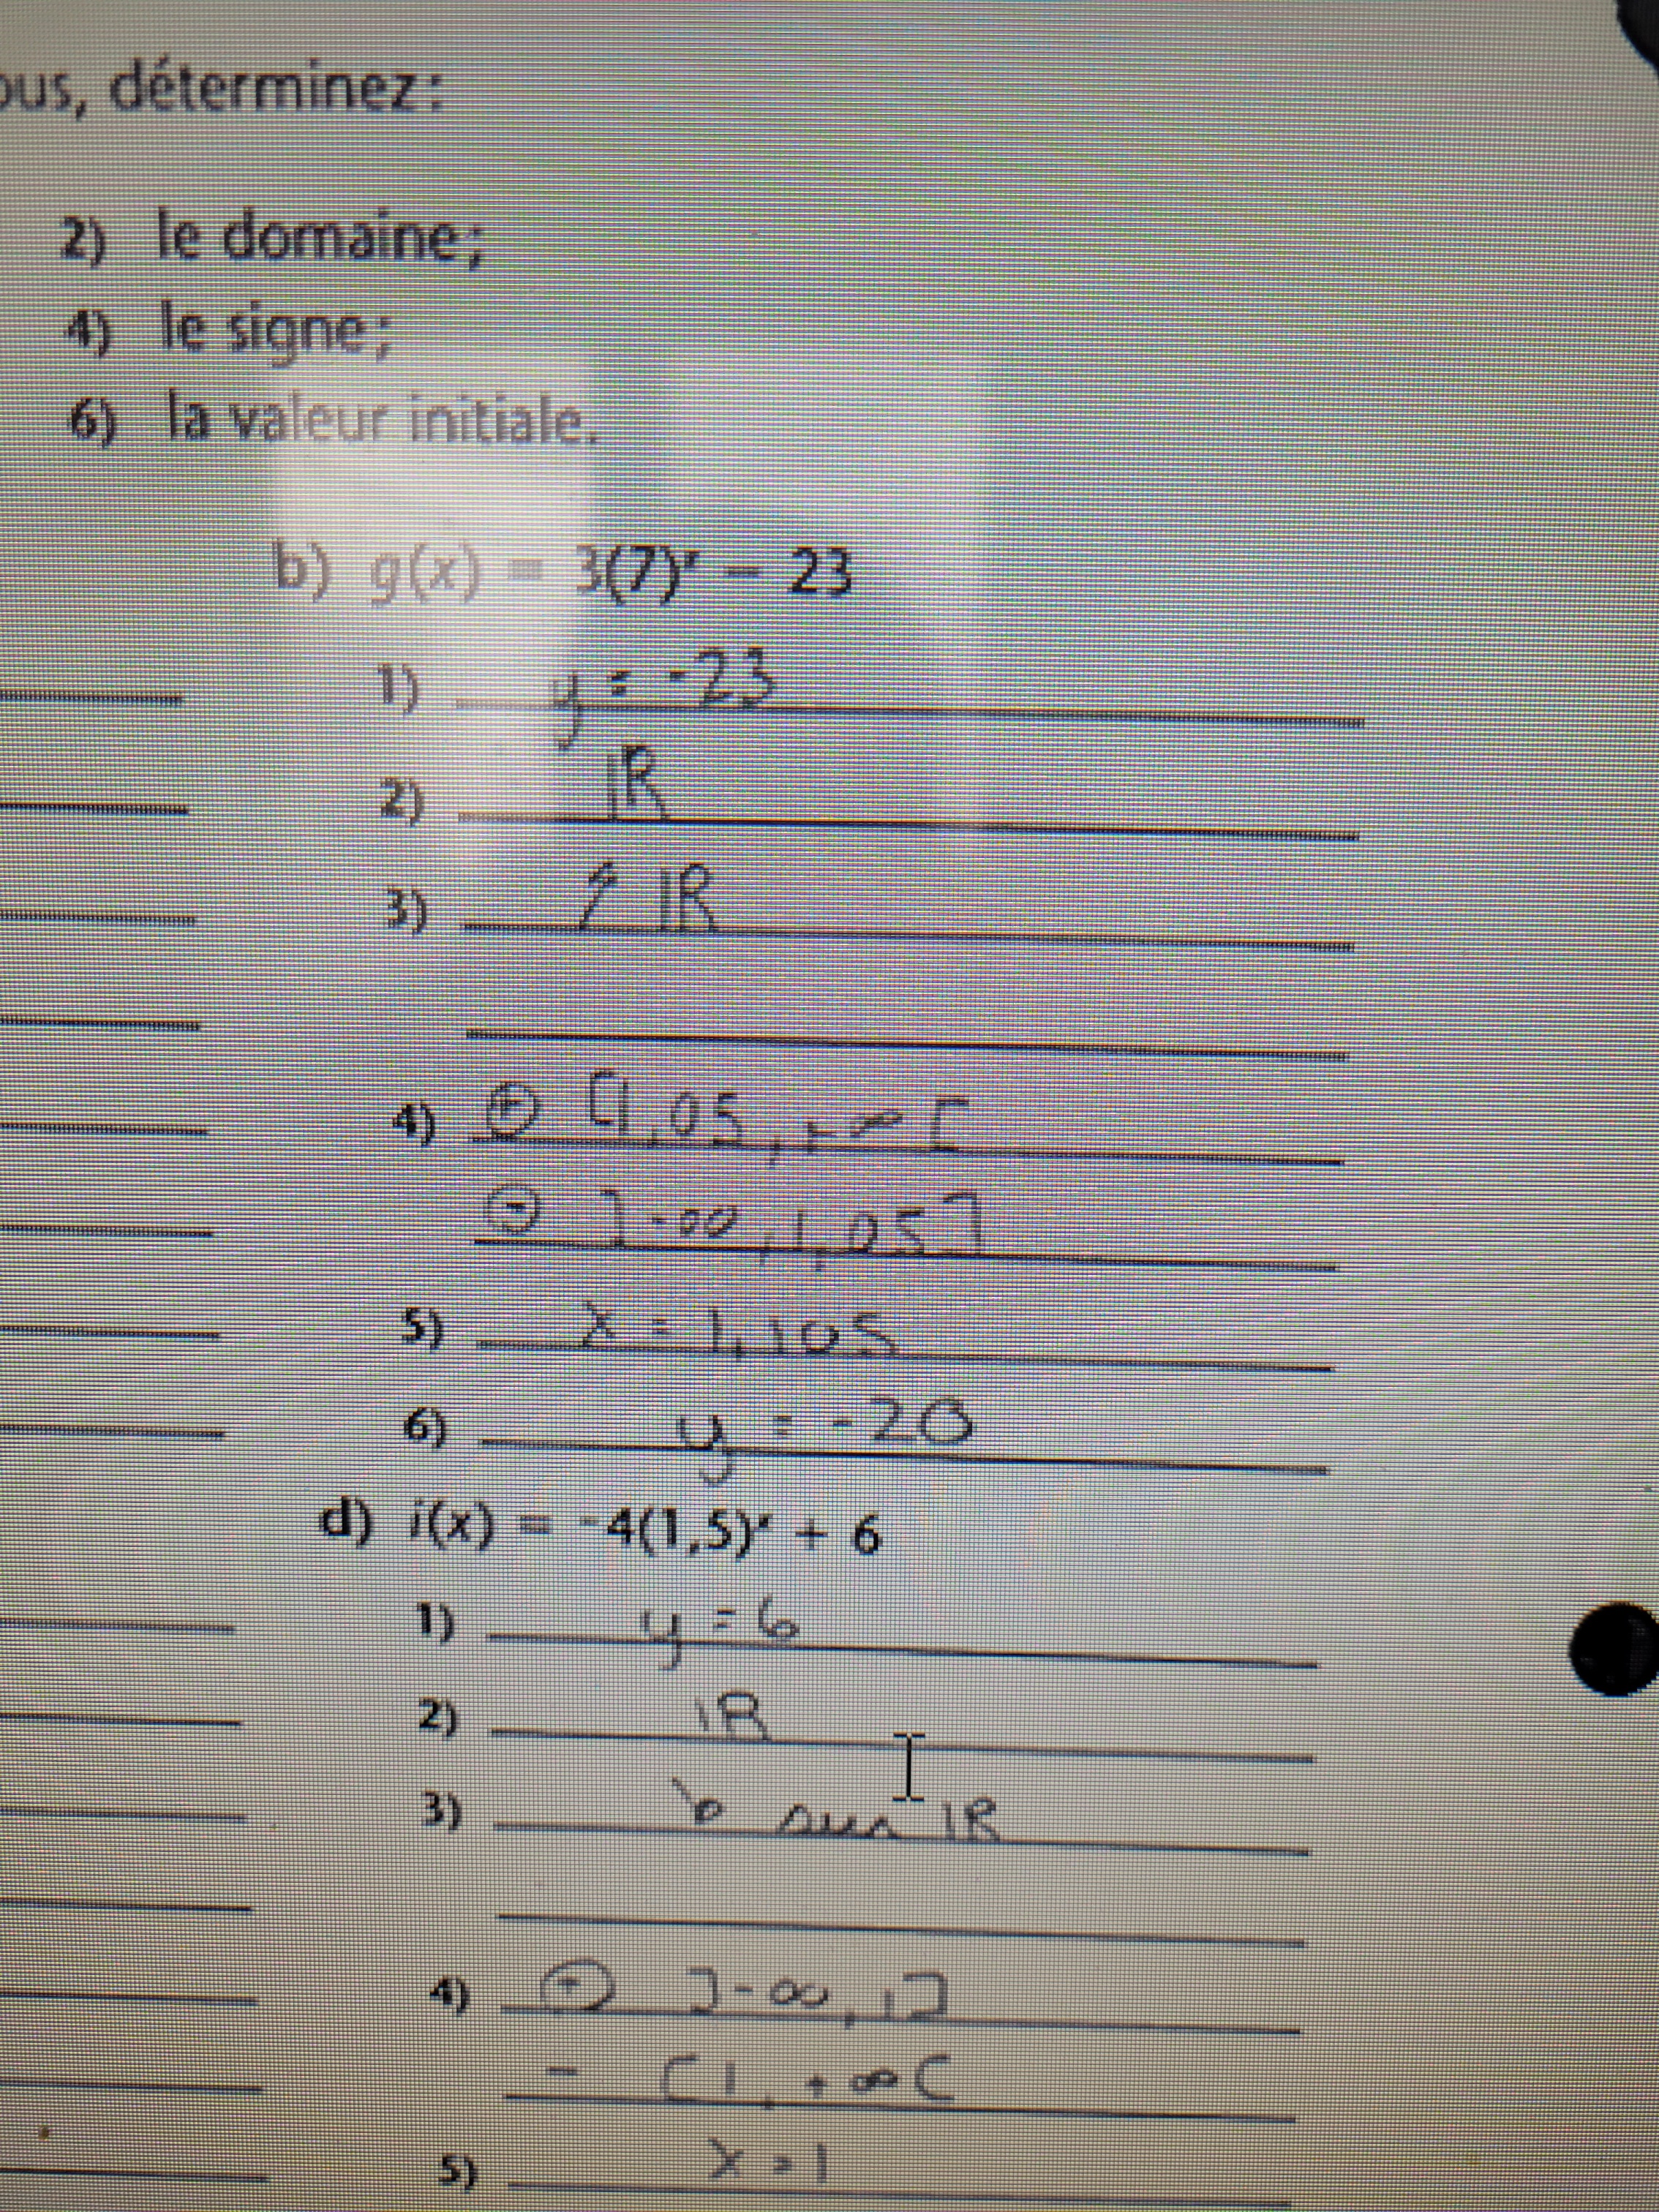 ous, déterminez:
2) le domaine;
4) le signe;
6) la valeur initiale.
b) g(x) = 3(7)ˣ − 23
1) y = -23
2) ℝ
3) ↗ ℝ
4) ⊕ [1,05, +∞[
⊖ ]-∞, 1,05]
5) x = 1,105
6) y = -20
d) i(x) = -4(1,5)ˣ + 6
1) y = 6
2) ℝ
3) ↘ sur ℝ
4) ⊕ ]-∞, 1]
- [1, +∞[
5) x = 1